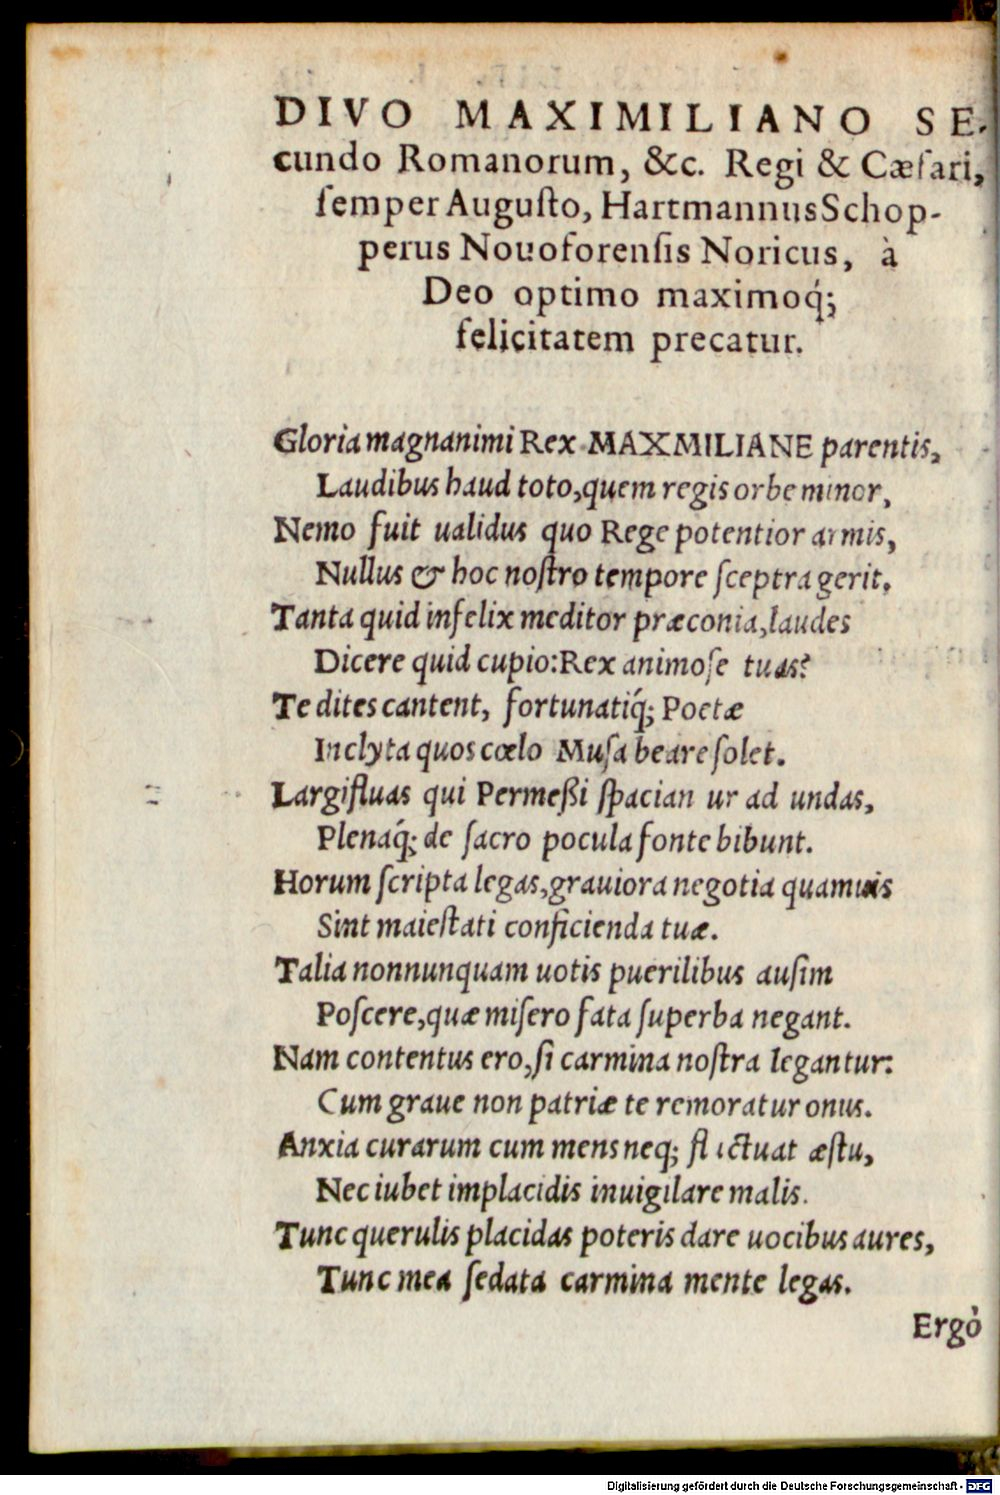 DIVO MAXIMILIANO SE-
cundo Romanorum, &c. Regi & Cæſari,
ſemper Auguſto, Hartmannus Schop-
perus Nouoforenſis Noricus, à
Deo optimo maximoq́;
felicitatem precatur.
Gloria magnanimi Rex MAXMILIANE parentis,
Laudibus haud toto, quem regis orbe minor,
Nemo fuit ualidus quo Rege potentior armis,
Nullus & hoc noſtro tempore ſceptra gerit.
Tanta quid infelix meditor præconia, laudes
Dicere quid cupio: Rex animoſe tuas?
Te dites cantent, fortunatiq́; Poetæ
Inclyta quos cœlo Muſa beare ſolet.
Largifluas qui Permeßi ſpacian ur ad undas,
Plenaq́; de ſacro pocula fonte bibunt.
Horum ſcripta legas, grauiora negotia quamuis
Sint maieſtati conficienda tuæ.
Talia nonnunquam uotis puerilibus auſim
Poſcere, quæ miſero fata ſuperba negant.
Nam contentus ero, ſi carmina noſtra legantur:
Cum graue non patriæ te remoratur onus.
Anxia curarum cum mens neq; fluctuat æſtu,
Nec iubet implacidis inuigilare malis.
Tunc querulis placidas poteris dare uocibus aures,
Tunc mea ſedata carmina mente legas.
Ergò
Digitalisierung gefördert durch die Deutsche Forschungsgemeinschaft - DFG